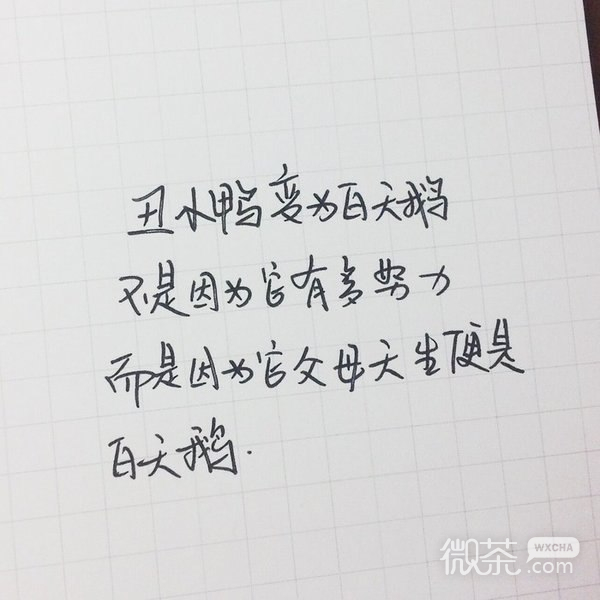 丑小鸭变为白天鹅
不是因为它有多努力
而是因为它父母天生便是
白天鹅.
微茶 WXCHA
.com